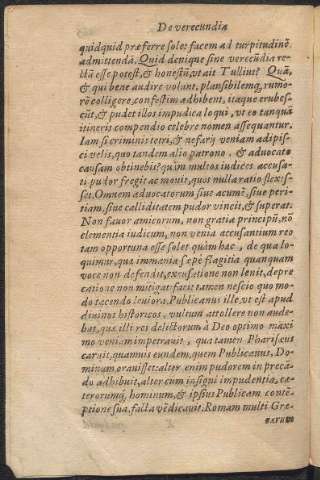 De verecũdia
quidquid præferre solet facem ad turpitudinẽ
admittenda. Quid denique sine verecũdia re-
ctũ esse potest, & honestũ, vt ait Tullius? Quã,
& qui bene audire volunt, plausibilemq́; rumo-
rẽ colligere, confestim adhibent, itaque erubes-
cũt, & pudet illos impudica loqui, vt eo tanquã
itineris compendio celebre nomen assequantur.
Iam si criminis tetri, & nefarij veniam adipis-
ci velis, quo tandem alio patrono, & aduocato
causam obtinebis? quìm multos iudices accusa-
ti pudor fregit ac mouit, quos nulla ratio flexis-
set. Omnem aduocatorum siue acumẽ, siue peri-
tiam, siue calliditatem pudor vincit, & superat.
Non fauor amicorum, non gratia principũ, nõ
clementia iudicum, non venia accusantium reo
tam opportuna esse solet quàm hæc, de qua lo-
quimur, quæ immania sæpè flagitia quanquam
voce non defendit, excusatione non lenit, depre
catione non mitigat: facit tamen nescio quo mo-
do tacendo leuiora. Publicanus ille, vt est apud
diuinos historicos, vultum attollere non aude-
bat, quæ illi res delictorum à Deo optimo maxi
mo veniam impetrauit, qua tamen Phariseus
caruit, quamuis eundem, quem Publicanus, Do-
minum orauisset: alter enim pudorem in precã-
do adhibuit, alter cum insigni impudentia, cæ-
terorumq́; hominum, & ipsius Publicani contẽ-
ptione sua, facta vẽdicauit. Romam multi Græ-